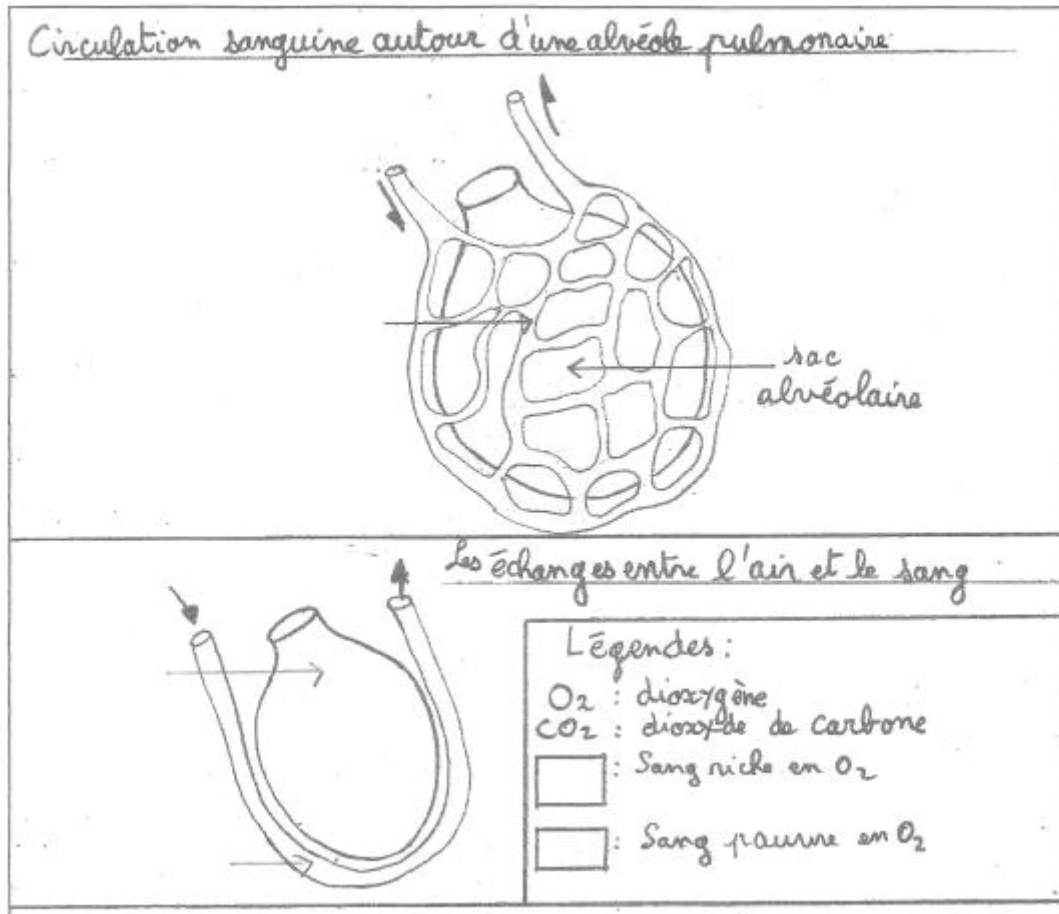 Circulation sanguine autour d'une alvéole pulmonaire
sac
alvéolaire
Les échanges entre l'air et le sang
Légendes :
O₂ : dioxygène
CO₂ : dioxyde de carbone
: Sang riche en O₂
: Sang pauvre en O₂